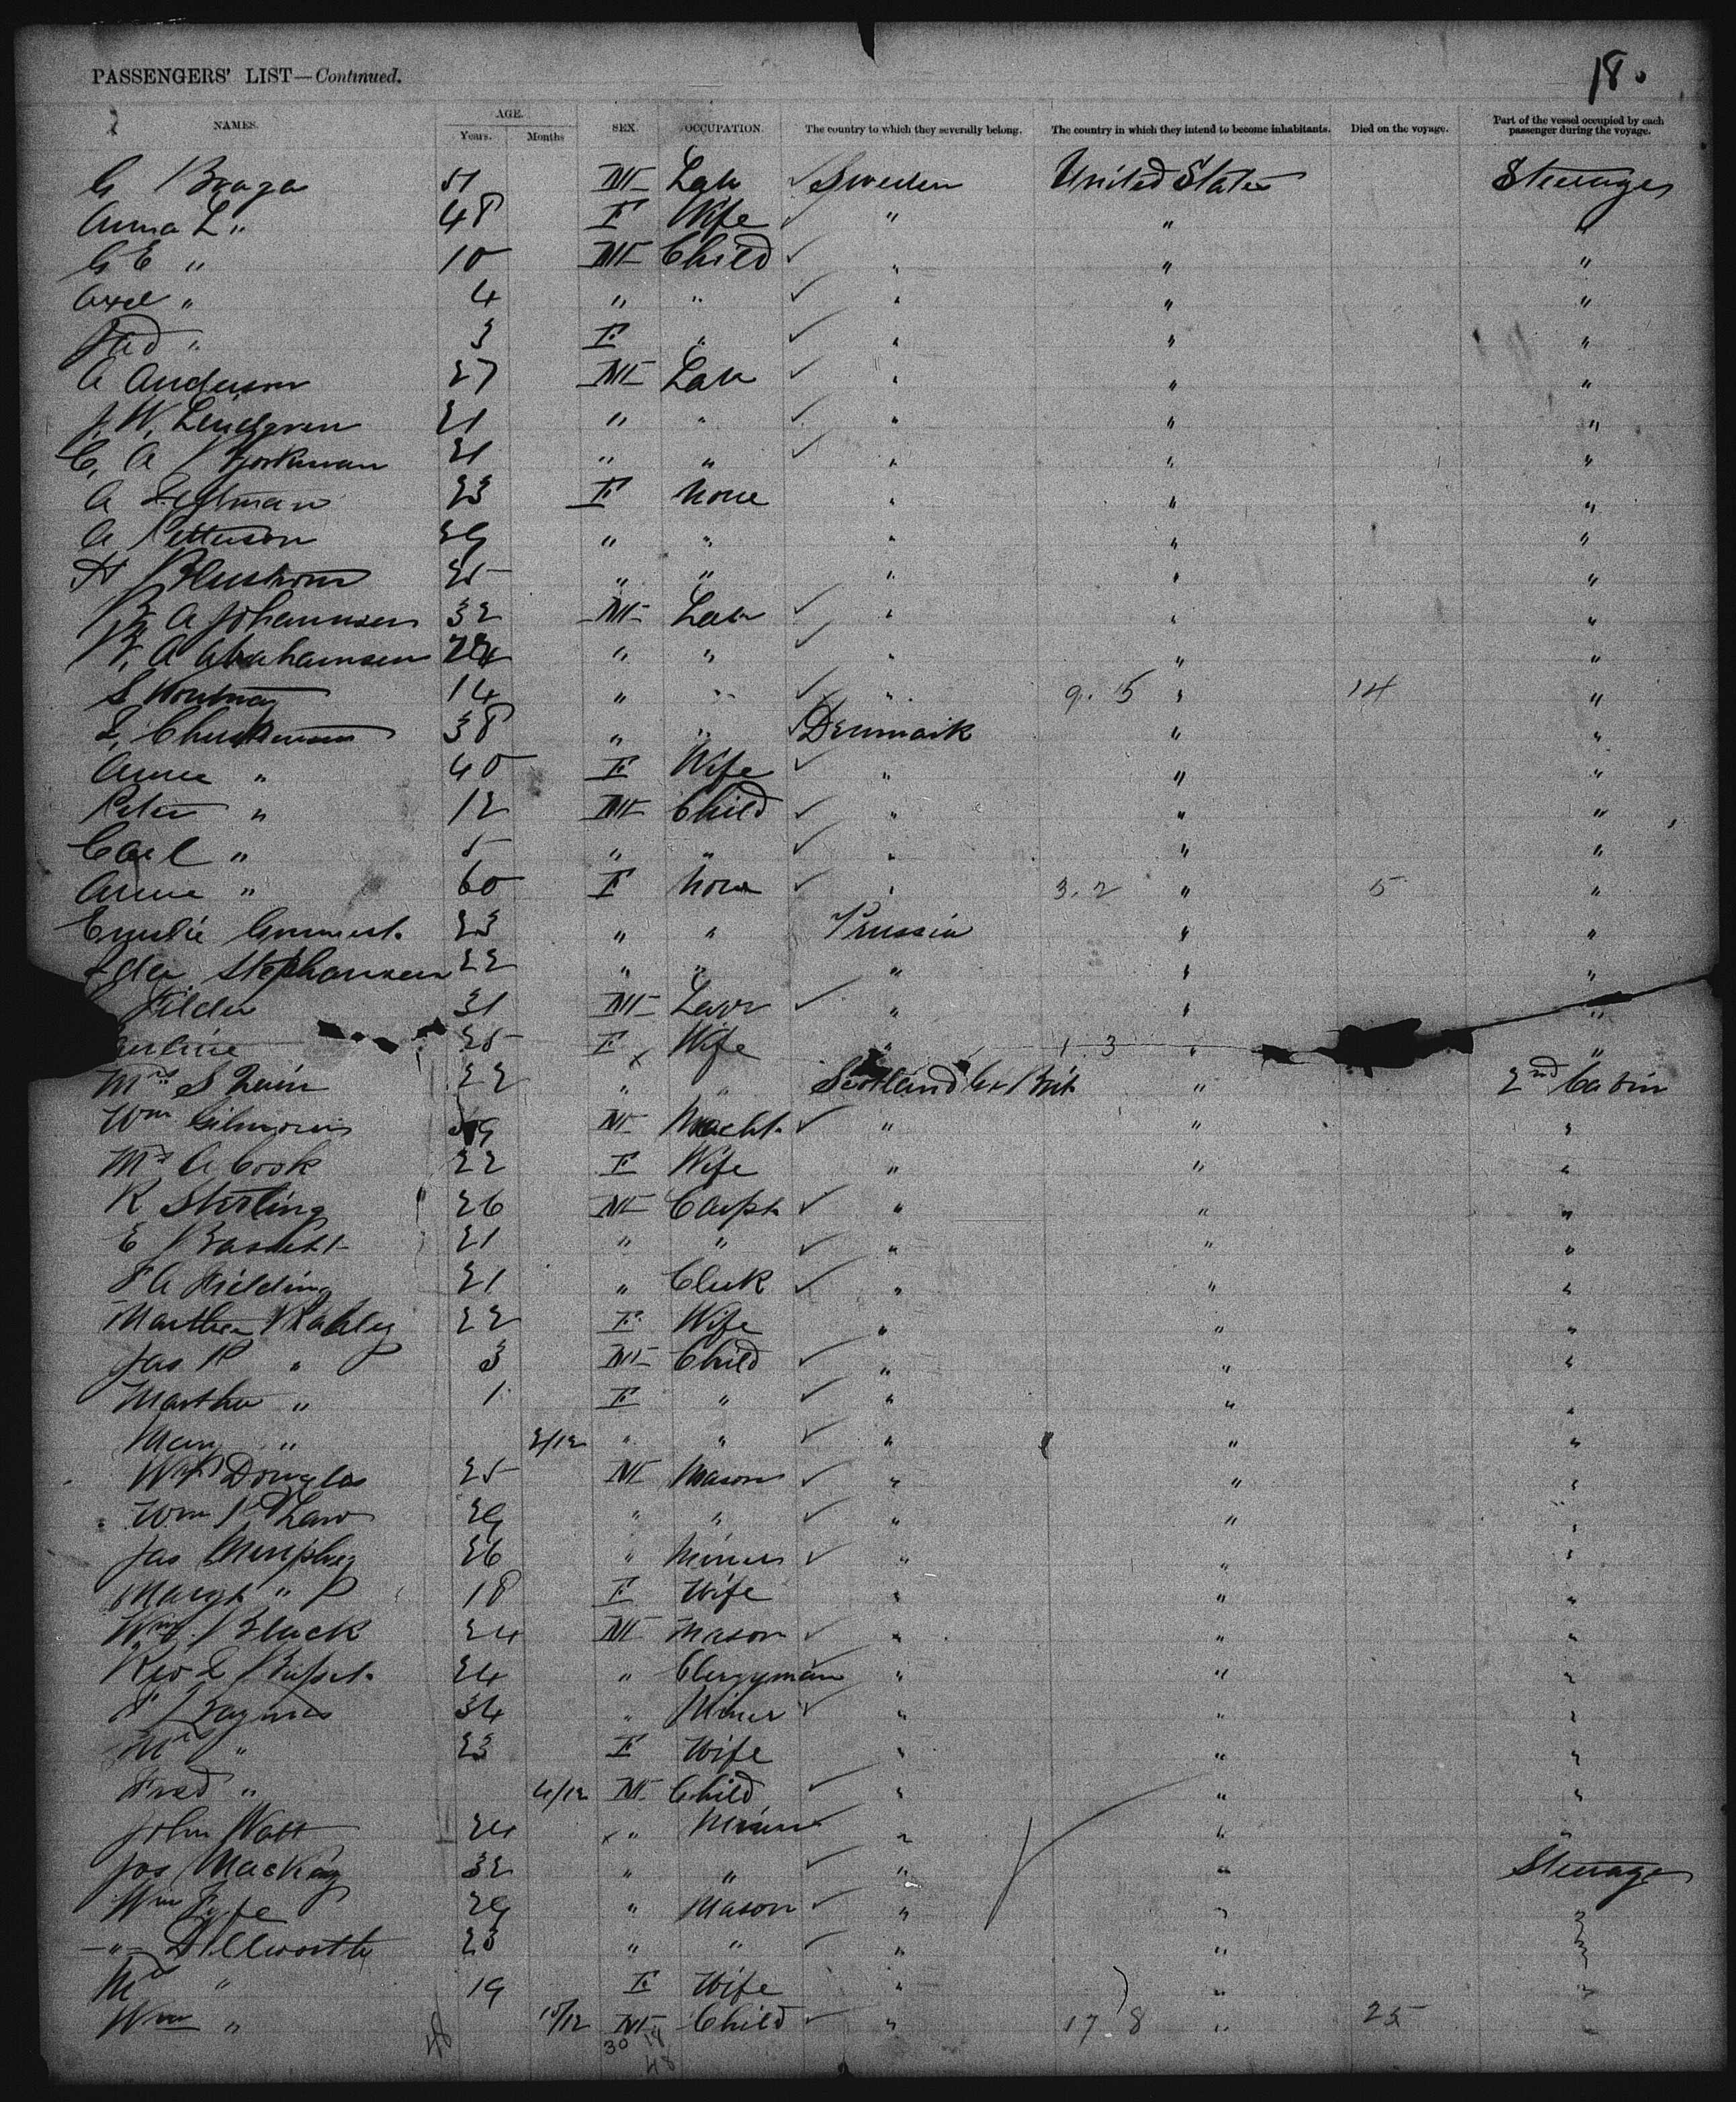 PASSENGERS' LIST—Continued. 18.
NAMES. AGE. Years. Months SEX. OCCUPATION. The country to which they severally belong. The country in which they intend to become inhabitants. Died on the voyage. Part of the vessel occupied by each passenger during the voyage.
G Braga 51 M Lab ✓ Sweden United States Steerage
Anna L " 48 F Wife ✓ " " "
G E " 10 M Child ✓ " " "
Axel " 4 " " ✓ " " "
" 3 F " ✓ " " "
A Anderson 27 M Lab ✓ " " "
J. W. Lindgren 21 " " ✓ " " "
C, A Bjorkman 21 " " ✓ " " "
A 23 F None " " "
A Petterson 29 " " " " "
H 25 " " " " "
B, A Johannsen 32 M Lab ✓ " " "
B, A Abrahamsen 24 " " ✓ " " "
S 14 " " ✓ " 9. 5 " 14 "
L, Christensen 38 " " ✓ Denmark " "
Anne " 40 F Wife ✓ " " "
Peter " 12 M Child ✓ " " "
Carl " 5 " " ✓ " " "
Anne " 60 F None ✓ " 3. 2 " 5 "
Emilie 23 " " Prussia " "
Stephansen 22 " " " " "
Filder 31 M Labr ✓ " " "
25 F x Wife " 1. 3 " "
Mrs S 22 " " Scotland Gt Brit " 2nd Cabin
Wm Gilmour M Macht. ✓ " " "
Mrs A Cook 22 F Wife " " "
R Sterling 26 M Carpt ✓ " " "
E 21 " " ✓ " " "
F A Fielding 21 " Clerk ✓ " " "
Martha 22 F Wife " " "
Jas R " 3 M Child ✓ " " "
Martha " 1 F " ✓ " " "
Mary " 2/12 " " ✓ " " "
Wm Douglas 25 M Mason ✓ " " "
Wm Law 29 " " ✓ " " "
Jas Murphy 26 " Miner ✓ " " "
Margt " 18 F Wife " " "
Wm Black 24 M Mason ✓ " " "
Rev 24 " Clergyman " " "
34 " Miner ✓ " " "
Mrs " 23 F Wife " " "
Fred " 4/12 M Child ✓ " " "
John Watt 24 x " Miner ✓ " " "
Jos MacKay 32 " " ✓ " " Steerage
Wm Fyfe 29 " Mason ✓ " " "
" Dillworth 23 " " ✓ " " "
Mrs " 19 F Wife " " "
Wm " 10/12 M Child ✓ " 17 8 " 25 "
48 30 18
48